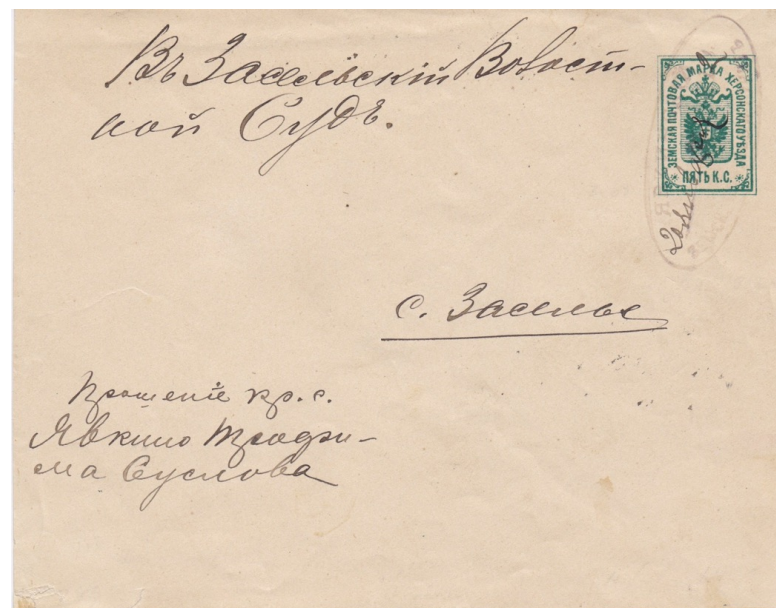 Въ Засельскій Волост-
ной Судъ.
ЗЕМСКАЯ ПОЧТОВАЯ МАРКА ХЕРСОНСКАГО УѢЗДА
ПЯТЬ К.С.
с. Заселье
Прошеніе кр. с.
Явкино Трофи-
ма Суслова